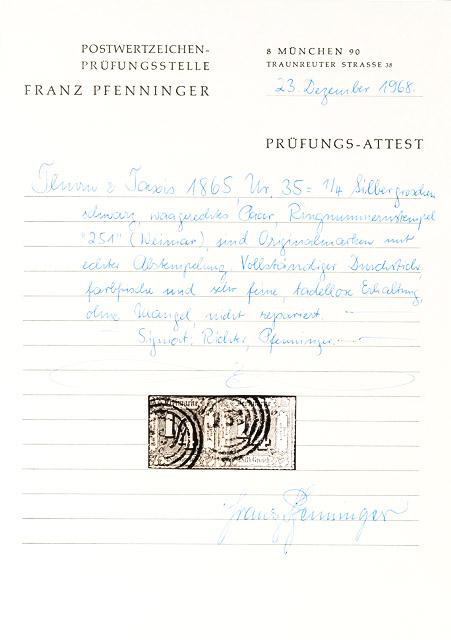 POSTWERTZEICHEN-
PRÜFUNGSSTELLE
FRANZ PFENNINGER
8 MÜNCHEN 90
TRAUNREUTER STRASSE 38
23. Dezember 1968.
PRÜFUNGS-ATTEST
Thurn & Taxis 1865, Nr. 35 = 1/4 Silbergroschen
schwarz, waagrechtes Paar, Ringnummernstempel
"251" (Weimar), sind Originalmarken mit
echter Abstempelung. Vollständiger Durchstich,
farbfrische und sehr feine, tadellose Erhaltung,
ohne Mangel, nicht repariert.
Signiert: Richter, Pfenninger.
Franz Pfenninger